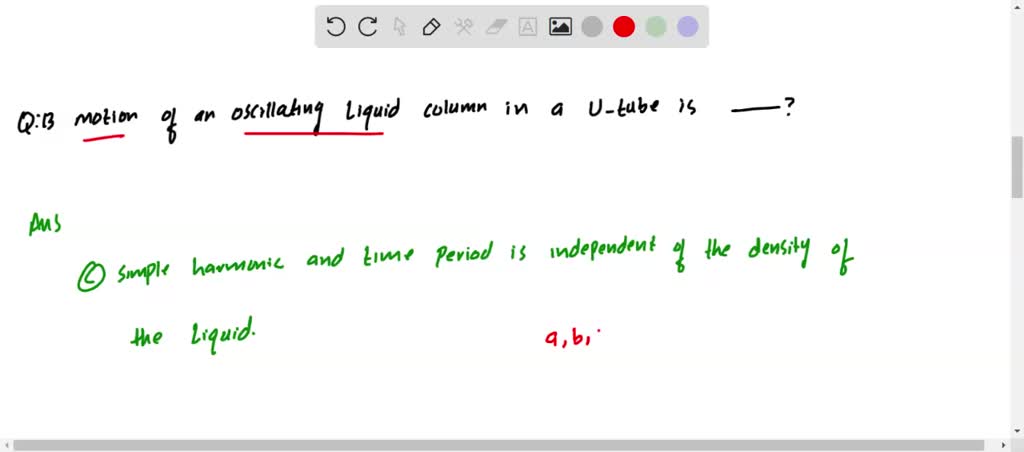 Q:13 motion of an oscillating Liquid column in a U-tube is ___?
Ans
(c) simple harmonic and time period is independent of the density of
the Liquid.
a, b,